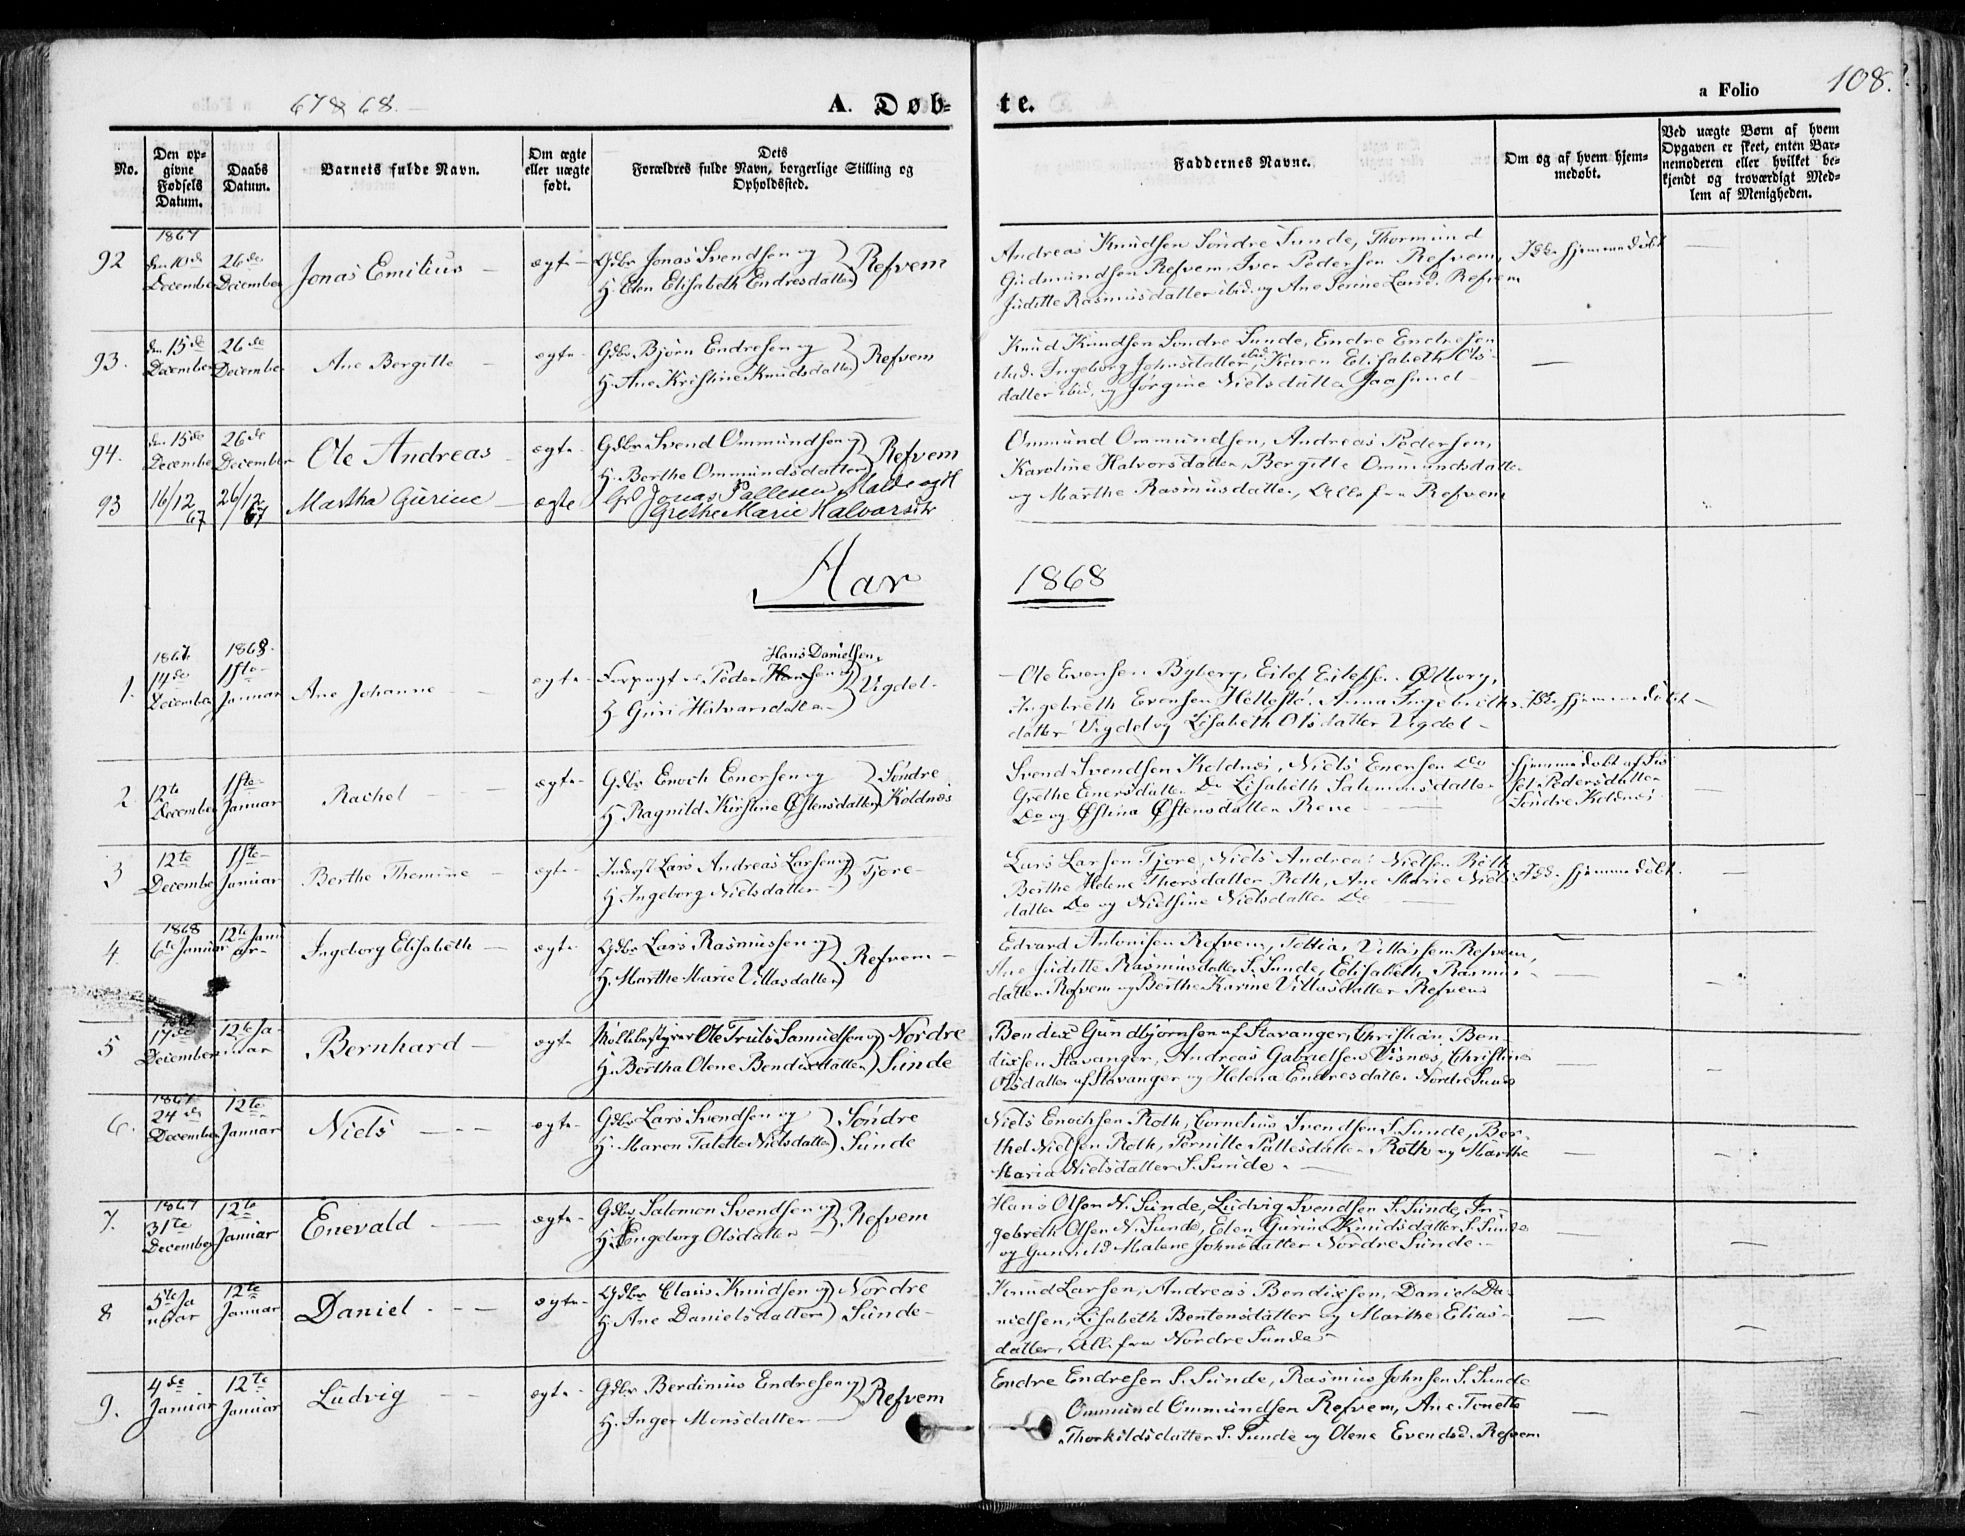 67 & 68.
A. Døb-
te.
a Folio
108.
No.
Den op-
givne
Fødsels
Datum.
Daabs
Datum.
Barnets fulde Navn.
Om ægte
eller uægte
født.
Dets
Forældres fulde Navn, borgerlige Stilling og
Opholdssted.
Faddernes Navne.
Om og af hvem hjem-
medøbt.
Ved uægte Børn af hvem
Opgaven er skeet, enten Bar-
nemoderen eller hvilket be-
kjendt og troværdigt Med-
lem af Menigheden.
92
1867
den 10de
December
26de
December
Jonas Emilius
ægte
Gdbr Jonas Svendsen og
H. Elen Elisabeth Endresdatter
Refvem
Andreas Knudsen Søndre Sunde, Thormund
Gudmundsen Refvem, Iver Pedersen Refvem
Juditte Rasmusdatter ibid. og Ane Serine Larsd. Refvem
Ikke hjemmedøbt
93.
den 15de
December
26de
December
Ane Bergitte
ægte
Gdbr Bjørn Endresen og
H. Ane Kristine Knudsdatter
Refvem
Knud Knudsen Søndre Sunde, Endre Endresen
ibid. Ingeborg Johnsdatter ibid. Karen Elisabeth Ols-
datter ibid. og Jorgine Nielsdatter Jaasund
94.
den 15de
December
26de
December
Ole Andreas
ægte
Gdbr Svend Ommundsen og
H. Berthe Ommundsdatter
Refvem
Ommund Ommundsen, Andreas Pedersen,
Karoline Halvorsdatter, Bergitte Ommundsdatter
og Marthe Rasmusdatter, Alle fra Refvem
93
16/12
67
26/12
67
Martha Gurine
ægte
Gr Jonas Pallesen Malde og H
Grethe Marie Halvorsdtr
Aar 1868
1.
1867
14de
December
1868.
1ste
Januar
Ane Johanne
ægte
Hans Danielsen
Forpagter Peder Hansen og
H. Guri Halvarsdatter
Vigdel.
Ole Evensen Byberg, Eilef Eilefsen Ølberg,
Ingebreth Evensen Hellestø. Anna Ingebreths-
datter Vigdel og Lisabeth Olsdatter Vigdel
Ikke hjemmedøbt
2
12te
December
1ste
Januar
Rachel
ægte
Gdbr Enoch Enersen og
H. Ragnild Kirstine Østensdatter
Søndre
Koldnæs
Svend Svendsen Koldnæs, Niels Enersen Do
Grethe Enersdatter Do Lisabeth Salamonsdatter
Do og Østina Østensdatter Rene
Hjemmedøbt af Sis-
sel Pedersdatter
Søndre Koldnæs
3
12te
December
1ste
Januar
Berthe Themine
ægte
Inderst Lars Andreas Larsen og
H. Ingeborg Nielsdatter
Tjore
Lars Larsen Tjore, Niels Andreas Nielsen Roth
Berthe Helene Thorsdatter Roth, Ane Marie Niels-
datter Do og Nielsine Nielsdatter Do
Ikke hjemmedøbt.
4.
1868
6te Januar
12te Janu
ar
Ingeborg Elisabeth
ægte
Gdbr Lars Rasmussen og
H. Marthe Marie Villasdatter
Refvem
Edvard Antonisen Refvem, Tollias Villassen Refvem,
Ane Juditte Rasmusdatter S. Sunde, Elisabeth Rasmus-
datter Refvem og Berthe Karine Villasdatter Refvem
5
17de
December
12te Ja-
nuar
Bernhard
ægte
Møllebestyrer Ole Truls Samuelsen og
H. Bertha Olene Bendixdatter
Nordre
Sunde
Bendix Gundbjørnsen af Stavanger, Christian Ben-
dixsen Stavanger, Andreas Gabrielsen Visnes, Christine
Olsdatter af Stavanger og Helena Endresdatter Nordre Sunde
6.
1867
24de
December
12te
Januar
Niels
ægte
Gdbr Lars Svendsen og
H. Maren Talette Nielsdatter
Søndre
Sunde
Niels Enochsen Roth, Cornelius Svendsen S. Sunde, Ber-
thel Nielsen Roth, Pernille Pallesdatter Roth og Marthe
Maria Nielsdatter S. Sunde.
7.
1867
31te
December
12te
Januar
Enevald
ægte
Gdbr Salomon Svendsen og
H. Engeborg Olsdatter
Refvem
Hans Olsen N. Sunde, Ludvig Svendsen S. Sunde, In-
gebreth Olsen N. Sunde, Elen Gurine Knudsdatter S. Sunde
og Gunnild Malene Johnsdatter Nordre Sunde.
8
5te Ja
nuar
12te
Januar
Daniel
ægte
Gdbr Claus Knudsen og
H. Ane Danielsdatter
Nordre
Sunde
Knud Larsen, Andreas Bendixsen, Daniel Da-
nielsen, Lisabeth Bentensdatter og Marthe Elias-
datter, Alle fra Nordre Sunde
9.
4de
Januar
12te
Januar
Ludvig
ægte
Gdbr Berdinius Endresen og
H. Inger Monsdatter
Refvem
Endre Endresen S. Sunde, Rasmus Johnsen S. Sunde
Ommund Ommundsen Refvem, Ane Tonette
Thorkildsdatter S. Sunde og Olene Evendsd. Refvem